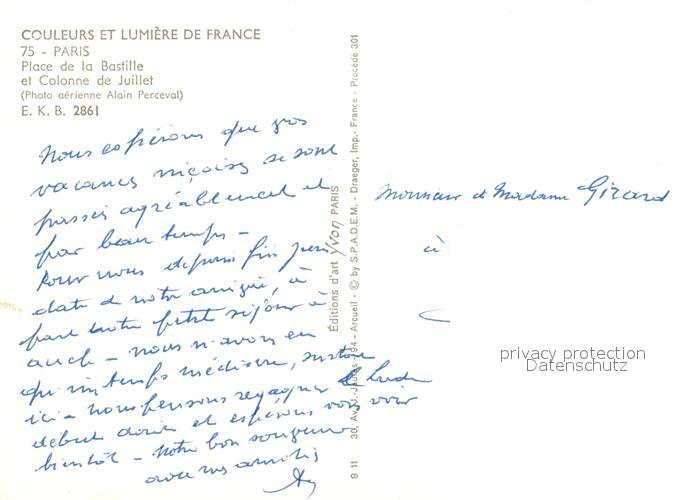 COULEURS ET LUMIÈRE DE FRANCE
75 - PARIS
Place de la Bastille
et Colonne de Juillet
(Photo aérienne Alain Perceval)
E. K. B. 2861
Nous espérons que vos
vacances niçoises se sont
passées agréablement et
par beau temps -
Pour nous depuis fin juin
date de notre arrivée, à
part notre petit séjour à
auch - nous n'avons eu
qu'un temps médiocre, surtout
ici - nous pensons regagner le
début août et espérons vous voir
bientôt - notre bon souvenir
avec nos amitiés
Editions d'art Yvon PARIS
30, Av. J.-Jaurès 94 - Arcueil - © by S.P.A.D.E.M. - Draeger, Imp. - France - Procédé 301
9 11
Monsieur et Madame Girard
à
privacy protection
Datenschutz